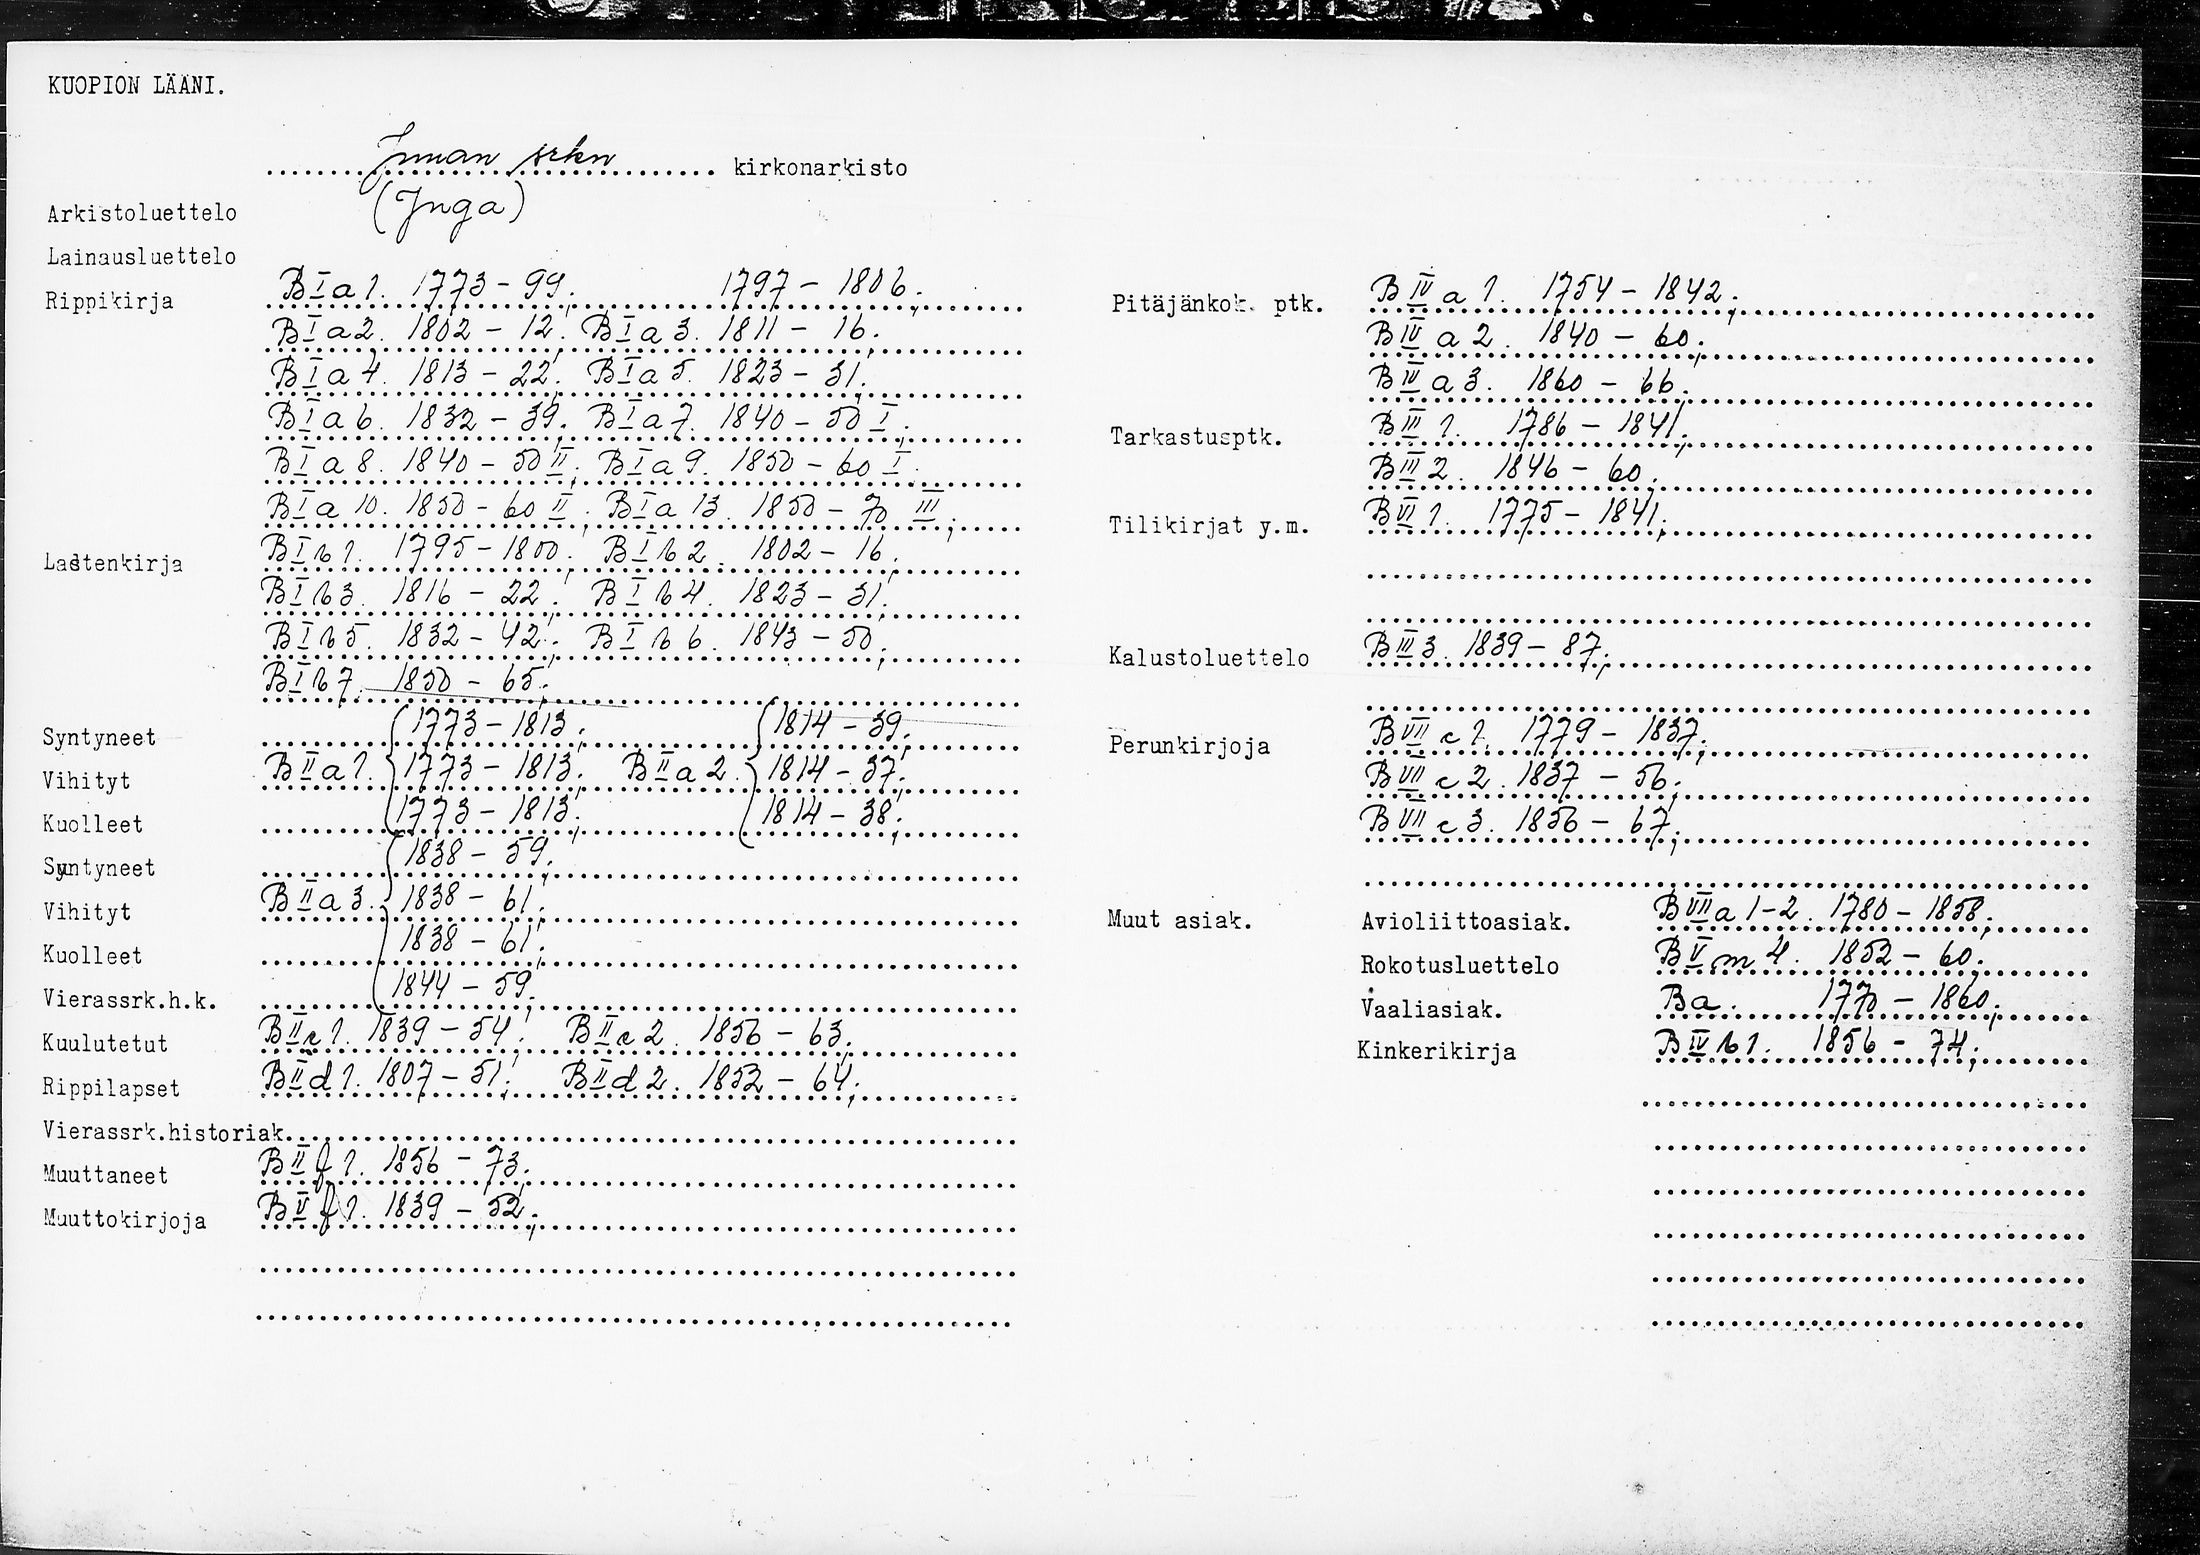 KUOPION LÄÄNI.
Juuan srkn kirkonarkisto
(Juga)
Arkistoluettelo
Lainausluettelo
Rippikirja B I a 1. 1773-99; 1797-1806;
B I a 2. 1802-12; B I a 3. 1811-16;
B I a 4. 1813-22; B I a 5. 1823-31;
B I a 6. 1832-39; B I a 7. 1840-50 I;
B I a 8. 1840-50 II; B I a 9. 1850-60 I;
B I a 10. 1850-60 II; B I a 13. 1850-70 III;
Lastenkirja B I b 1. 1795-1800; B I b 2. 1802-16;
B I b 3. 1816-22; B I b 4. 1823-31;
B I b 5. 1832-42; B I b 6. 1843-50;
B I b 7. 1850-65;
Syntyneet 1773-1813; 1814-39;
Vihityt B II a 1. 1773-1813; B II a 2. 1814-37;
Kuolleet 1773-1813; 1814-38;
Syntyneet 1838-59;
Vihityt B II a 3. 1838-61;
Kuolleet 1838-61;
Vierassrk.h.k. 1844-59;
Kuulutetut B II c 1. 1839-54; B II c 2. 1856-63;
Rippilapset B II d 1. 1807-51; B II d 2. 1852-64;
Vierassrk.historiak.
Muuttaneet B II f 1. 1856-73;
Muuttokirjoja B V f 1. 1839-52;
Pitäjänkok. ptk. B IV a 1. 1754-1842;
B IV a 2. 1840-60;
B IV a 3. 1860-66;
Tarkastusptk. B III 1. 1786-1841;
B III 2. 1846-60;
Tilikirjat y.m. B VI 1. 1775-1841;
Kalustoluettelo B III 3. 1839-87;
Perunkirjoja B VII c 1. 1779-1837;
B VII c 2. 1837-56;
B VII c 3. 1856-67;
Muut asiak. Avioliittoasiak. B VII a 1-2. 1780-1858;
Rokotusluettelo B V m 4. 1852-60;
Vaaliasiak. Ba. 1770-1860;
Kinkerikirja B IV b 1. 1856-74;